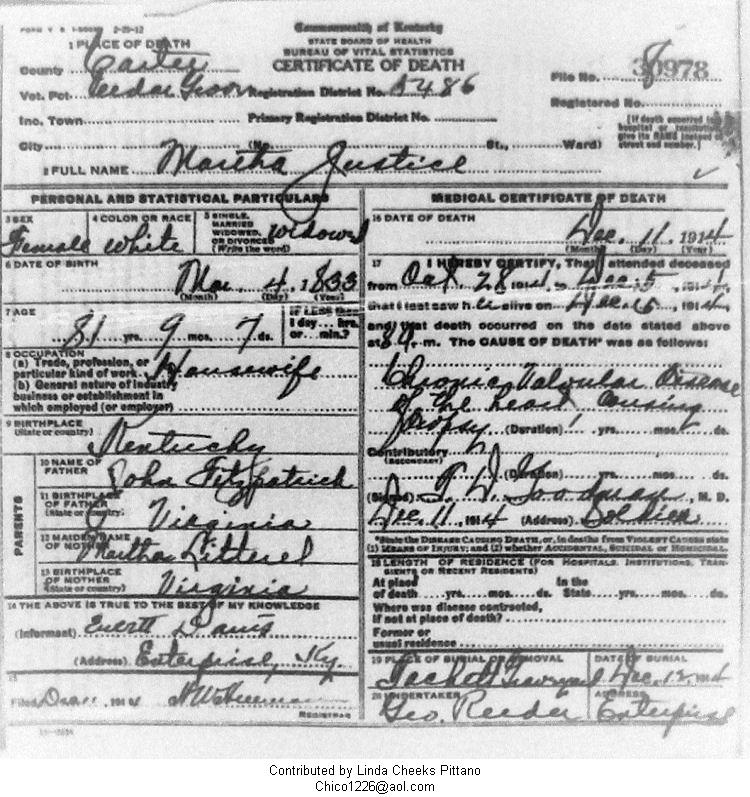 FORM V. S. 2-25-12
Commonwealth of Kentucky
STATE BOARD OF HEALTH
BUREAU OF VITAL STATISTICS
CERTIFICATE OF DEATH
1 PLACE OF DEATH
County Carter
Vot. Pct. Registration District No. 5486
File No. 30978
Registered No.
Inc. Town Primary Registration District No.
City (No. St., Ward)
[If death occurred in hospital or institution give its NAME instead of street and number.]
2 FULL NAME Martha Justice
PERSONAL AND STATISTICAL PARTICULARS
3 SEX Female
4 COLOR OR RACE White
5 SINGLE, MARRIED WIDOWED, OR DIVORCED (Write the word) Widowed
6 DATE OF BIRTH
Mar. 4, 1833
(Month) (Day) (Year)
7 AGE
81 yrs. 9 mos. 7 ds.
IF LESS than 1 day... hrs. or... min.?
8 OCCUPATION
(a) Trade, profession, or particular kind of work Housewife
(b) General nature of industry, business or establishment in which employed (or employer)
9 BIRTHPLACE
(State or country) Kentucky
PARENTS
10 NAME OF FATHER John Fitzpatrick
11 BIRTHPLACE OF FATHER (State or country) Virginia
12 MAIDEN NAME OF MOTHER Martha Litterel
13 BIRTHPLACE OF MOTHER (State or country) Virginia
14 THE ABOVE IS TRUE TO THE BEST OF MY KNOWLEDGE
(Informant) Everett Davis
(Address) Enterprise, Ky.
15
Filed 1914
REGISTRAR
MEDICAL CERTIFICATE OF DEATH
16 DATE OF DEATH
Dec. 11, 1914
(Month) (Day) (Year)
17 I HEREBY CERTIFY, That I attended deceased
from Oct 28 1914, to Dec. 5, 1914,
that I last saw her alive on Dec. 5, 1914,
and that death occurred on the date stated above
at m. The CAUSE OF DEATH* was as follows:
Chronic Valvular Disease
of the heart, Causing
Dropsy (Duration) 1 yrs. mos. ds.
Contributory
(SECONDARY)
(Duration) yrs. mos. ds.
(Signed) T. D. Goodman, M. D.
Dec. 11, 1914 (Address) Soldier
*State the DISEASE CAUSING DEATH, or, in deaths from VIOLENT CAUSES state (1) MEANS OF INJURY; and (2) whether ACCIDENTAL, SUICIDAL or HOMICIDAL.
18 LENGTH OF RESIDENCE (FOR HOSPITALS, INSTITUTIONS, TRANSIENTS OR RECENT RESIDENTS)
At place of death yrs. mos. ds. In the State yrs. mos. ds.
Where was disease contracted, if not at place of death?
Former or usual residence
19 PLACE OF BURIAL OR REMOVAL
DATE OF BURIAL
Graveyard Dec. 12, 1914
20 UNDERTAKER
Geo. Reeder
ADDRESS
Enterprise
Contributed by Linda Cheeks Pittano
Chico1226@aol.com